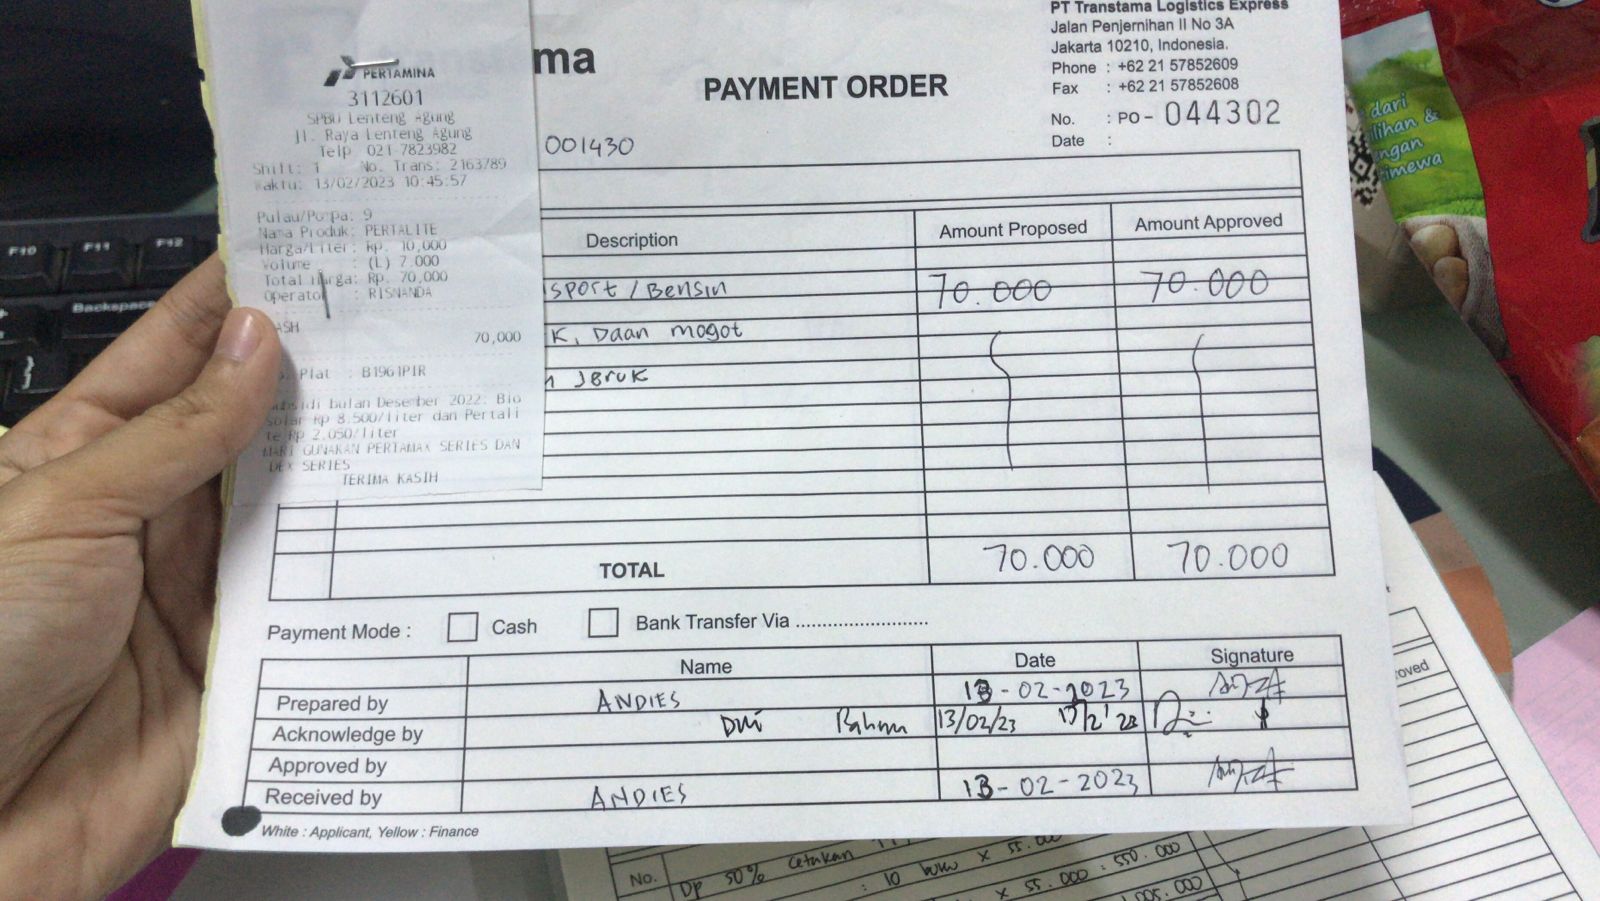 PERTAMINA
3112601
SPBU Lenteng Agung
Jl. Raya Lenteng Agung
Telp. 021-7823982
Shift: 1 No. Trans: 2163789
Waktu: 13/02/2023 10:45:57
Pulau/Pompa: 9
Nama Produk: PERTALITE
Harga/Liter: Rp. 10,000
Volume : (L) 7.000
Total Harga: Rp. 70,000
Operator : RISNANDA
CASH
70,000
Plat : B1961PIR
Subsidi bulan Desember 2022: Bio
solar Rp 8.500/liter dan Pertali
te Rp 2.050/liter
MARI GUNAKAN PERTAMAX SERIES DAN
DEX SERIES
TERIMA KASIH
ma
PAYMENT ORDER
PT Transtama Logistics Express
Jalan Penjernihan II No 3A
Jakarta 10210, Indonesia.
Phone : +62 21 57852609
Fax : +62 21 57852608
No. : PO - 044302
Date :
001430
Description Amount Proposed Amount Approved
sport / Bensin 70.000 70.000
K, Daan mogot
n Jeruk
TOTAL 70.000 70.000
Payment Mode : Cash Bank Transfer Via ........................
Name Date Signature
Prepared by ANDIES 13-02-2023
Acknowledge by Dwi 13/02/23
Approved by
Received by ANDIES 13-02-2023
White : Applicant, Yellow : Finance
No. Dp 50% cetakan
: 10 buku x 55.000
x 55.000 : 550.000
.005.000
oved
F10 F11 F12
Backspace
}
dari
ilihan &
engan
timewa